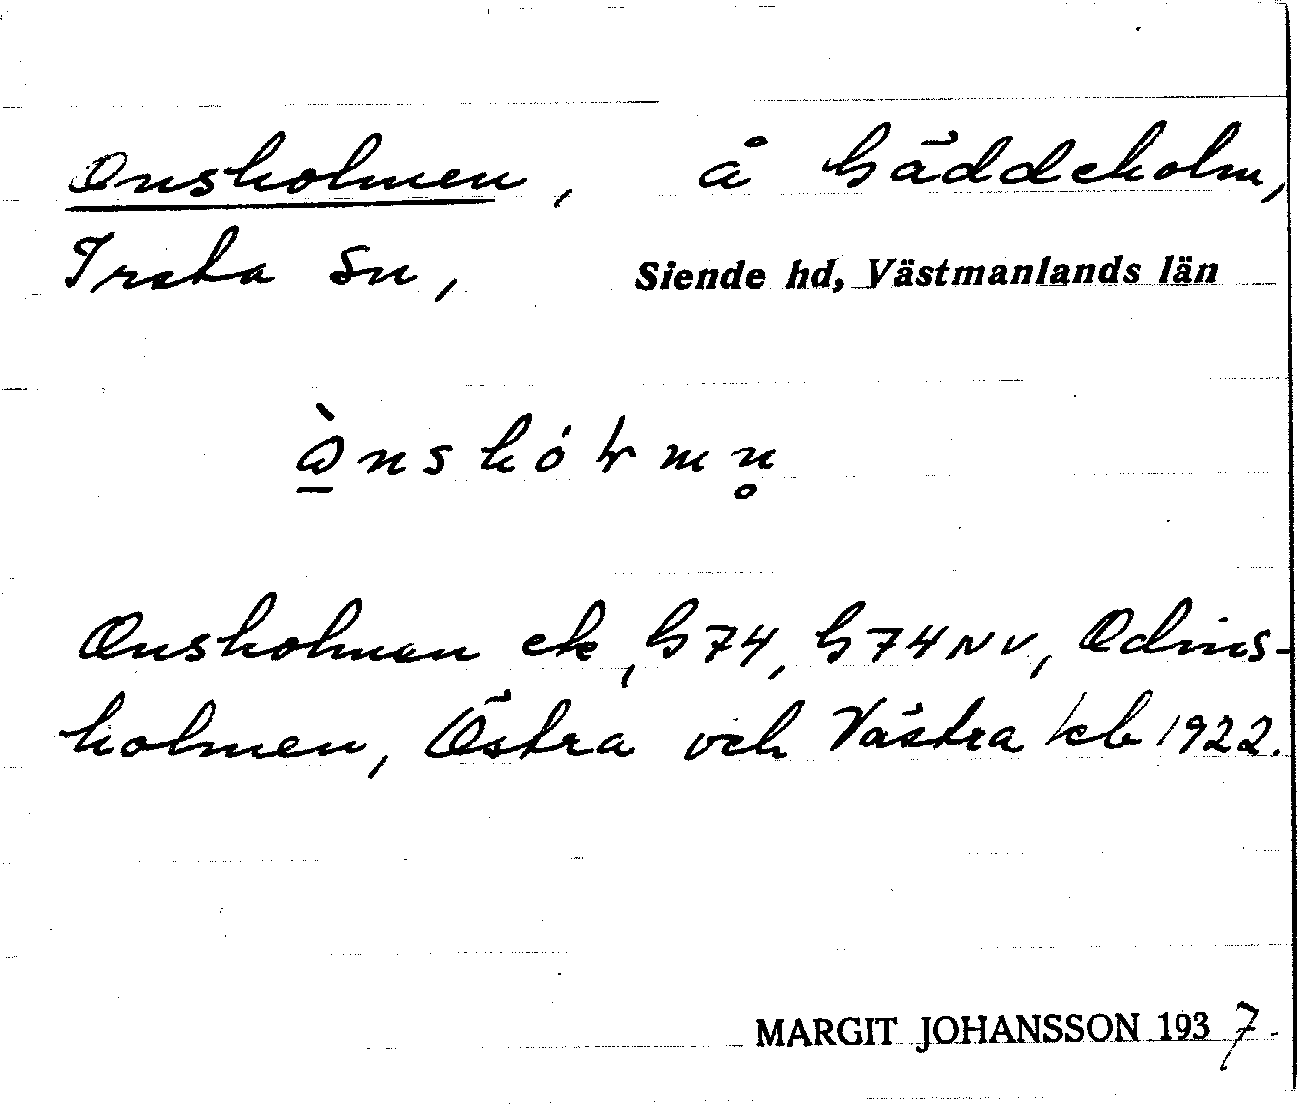 Onsholmen, å Gäddeholm,
Irsta sn, Siende hd, Västmanlands län
Onsholmen ek, G74, G74NV, Odins-
holmen, Östra och Västra kb 1922.
MARGIT JOHANSSON 1937.